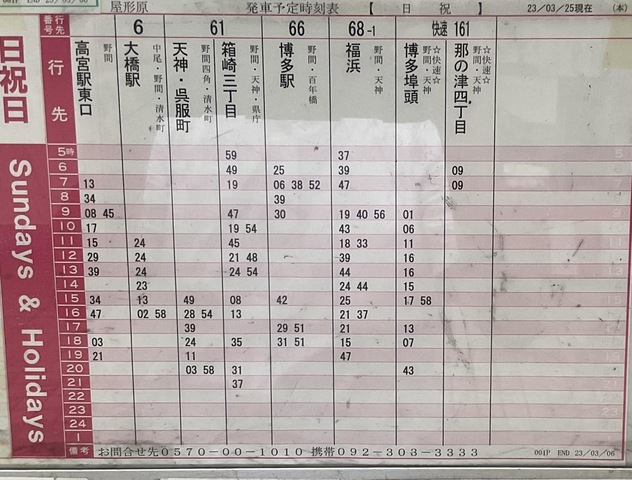 001P END 23/03/06
屋形原 発車予定時刻表 【 日 祝 】 23/03/25現在 (本)
日祝日
Sundays & Holidays
行先番号 6 61 66 68-1 快速 161
行先
高宮駅東口 野間
大橋駅 中尾・野間・清水町
天神・呉服町 野間四角・清水町
箱崎三丁目 野間・天神・県庁
博多駅 野間・百年橋
福浜 野間・天神
博多埠頭 ☆快速☆ 野間・天神
那の津四丁目 ☆快速☆ 野間・天神
5時 59 37
6 49 25 39 09
7 13 19 06 38 52 47 09
8 34 39
9 08 45 47 30 19 40 56 01
10 17 19 54 43 06
11 15 24 45 18 33 11
12 29 24 21 48 39 16
13 39 24 24 54 44 16
14 23 24 44 15
15 34 13 49 08 42 25 17 58
16 47 02 58 28 54 13 21 37
17 39 29 51 21 13
18 03 24 35 31 51 15 07
19 21 11 47
20 03 58 31 43
21 37
22
23
24
1
備考 お問合せ先0570-00-1010 携帯092-303-3333 001P END 23/03/06